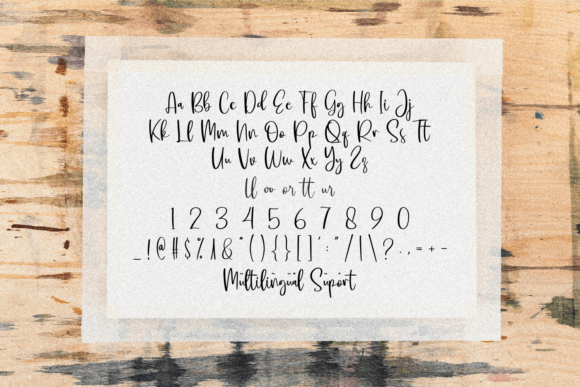 Aa Bb Cc Dd Ee Ff Gg Hh Ii Jj
Kk Ll Mm Nn Oo Pp Qq Rr Ss Tt
Uu Vv Ww Xx Yy Zz
ll oo or tt ur
1 2 3 4 5 6 7 8 9 0
_ ! @ # $ % ^ & * ( ) { } [ ] ' : " / | \ ? . , = + -
Multilingual Suport